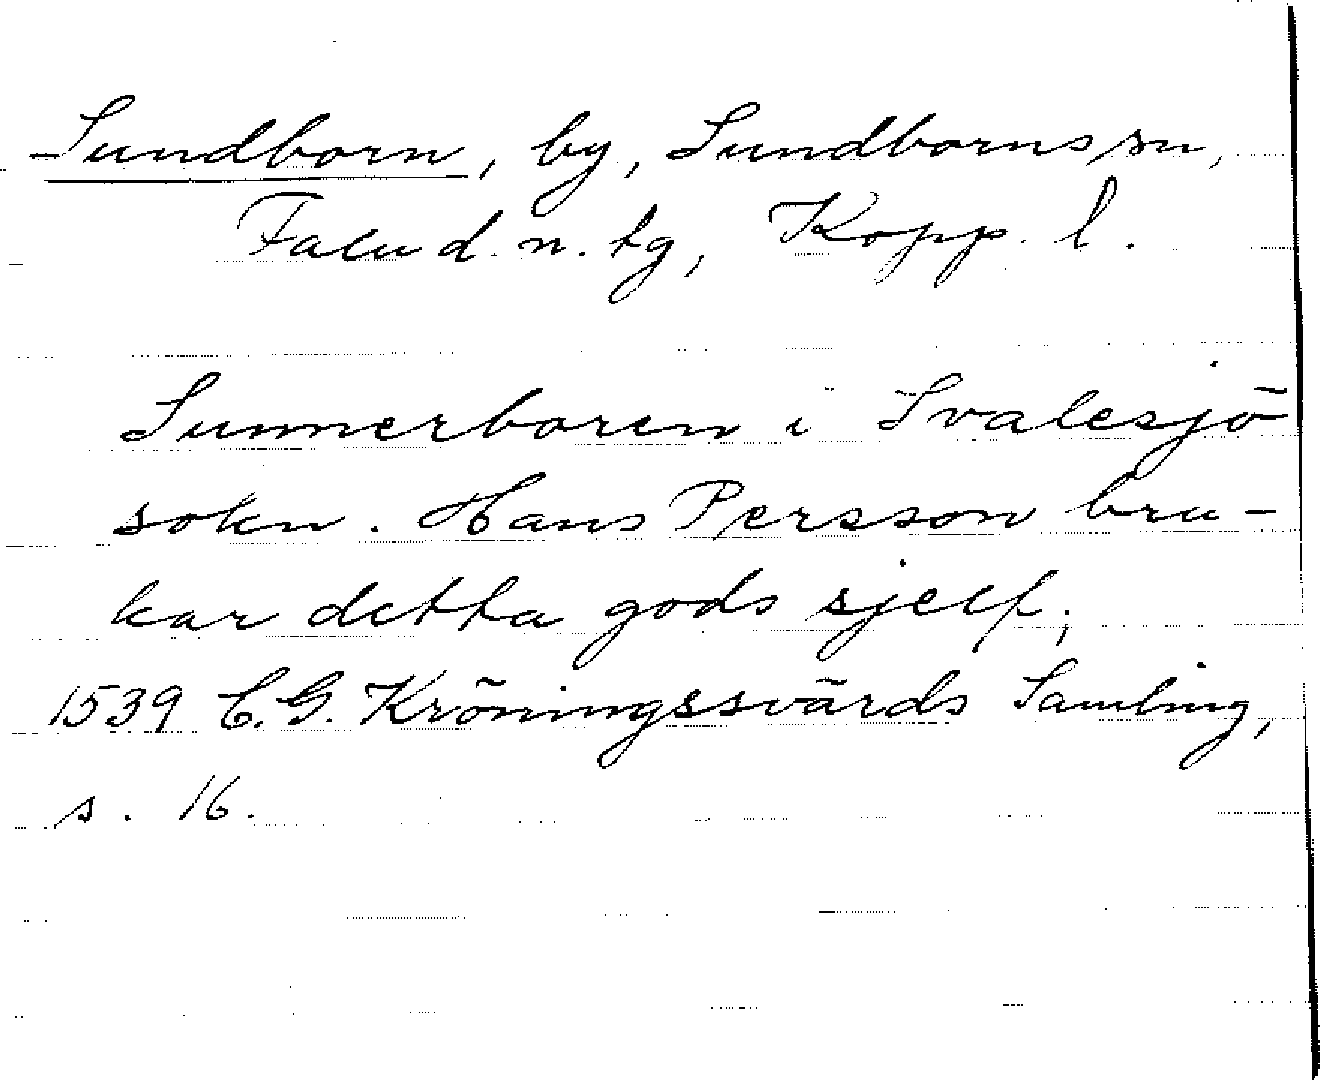 Sundborn, by, Sundborns sn,
Falu d. n. tg, Kopp. l.
Sunnerboren i Svalesjö
sokn. Hans Persson bru-
kar detta gods sjelf;
1539 C.G. Kröningssvärds Samling,
s. 16.